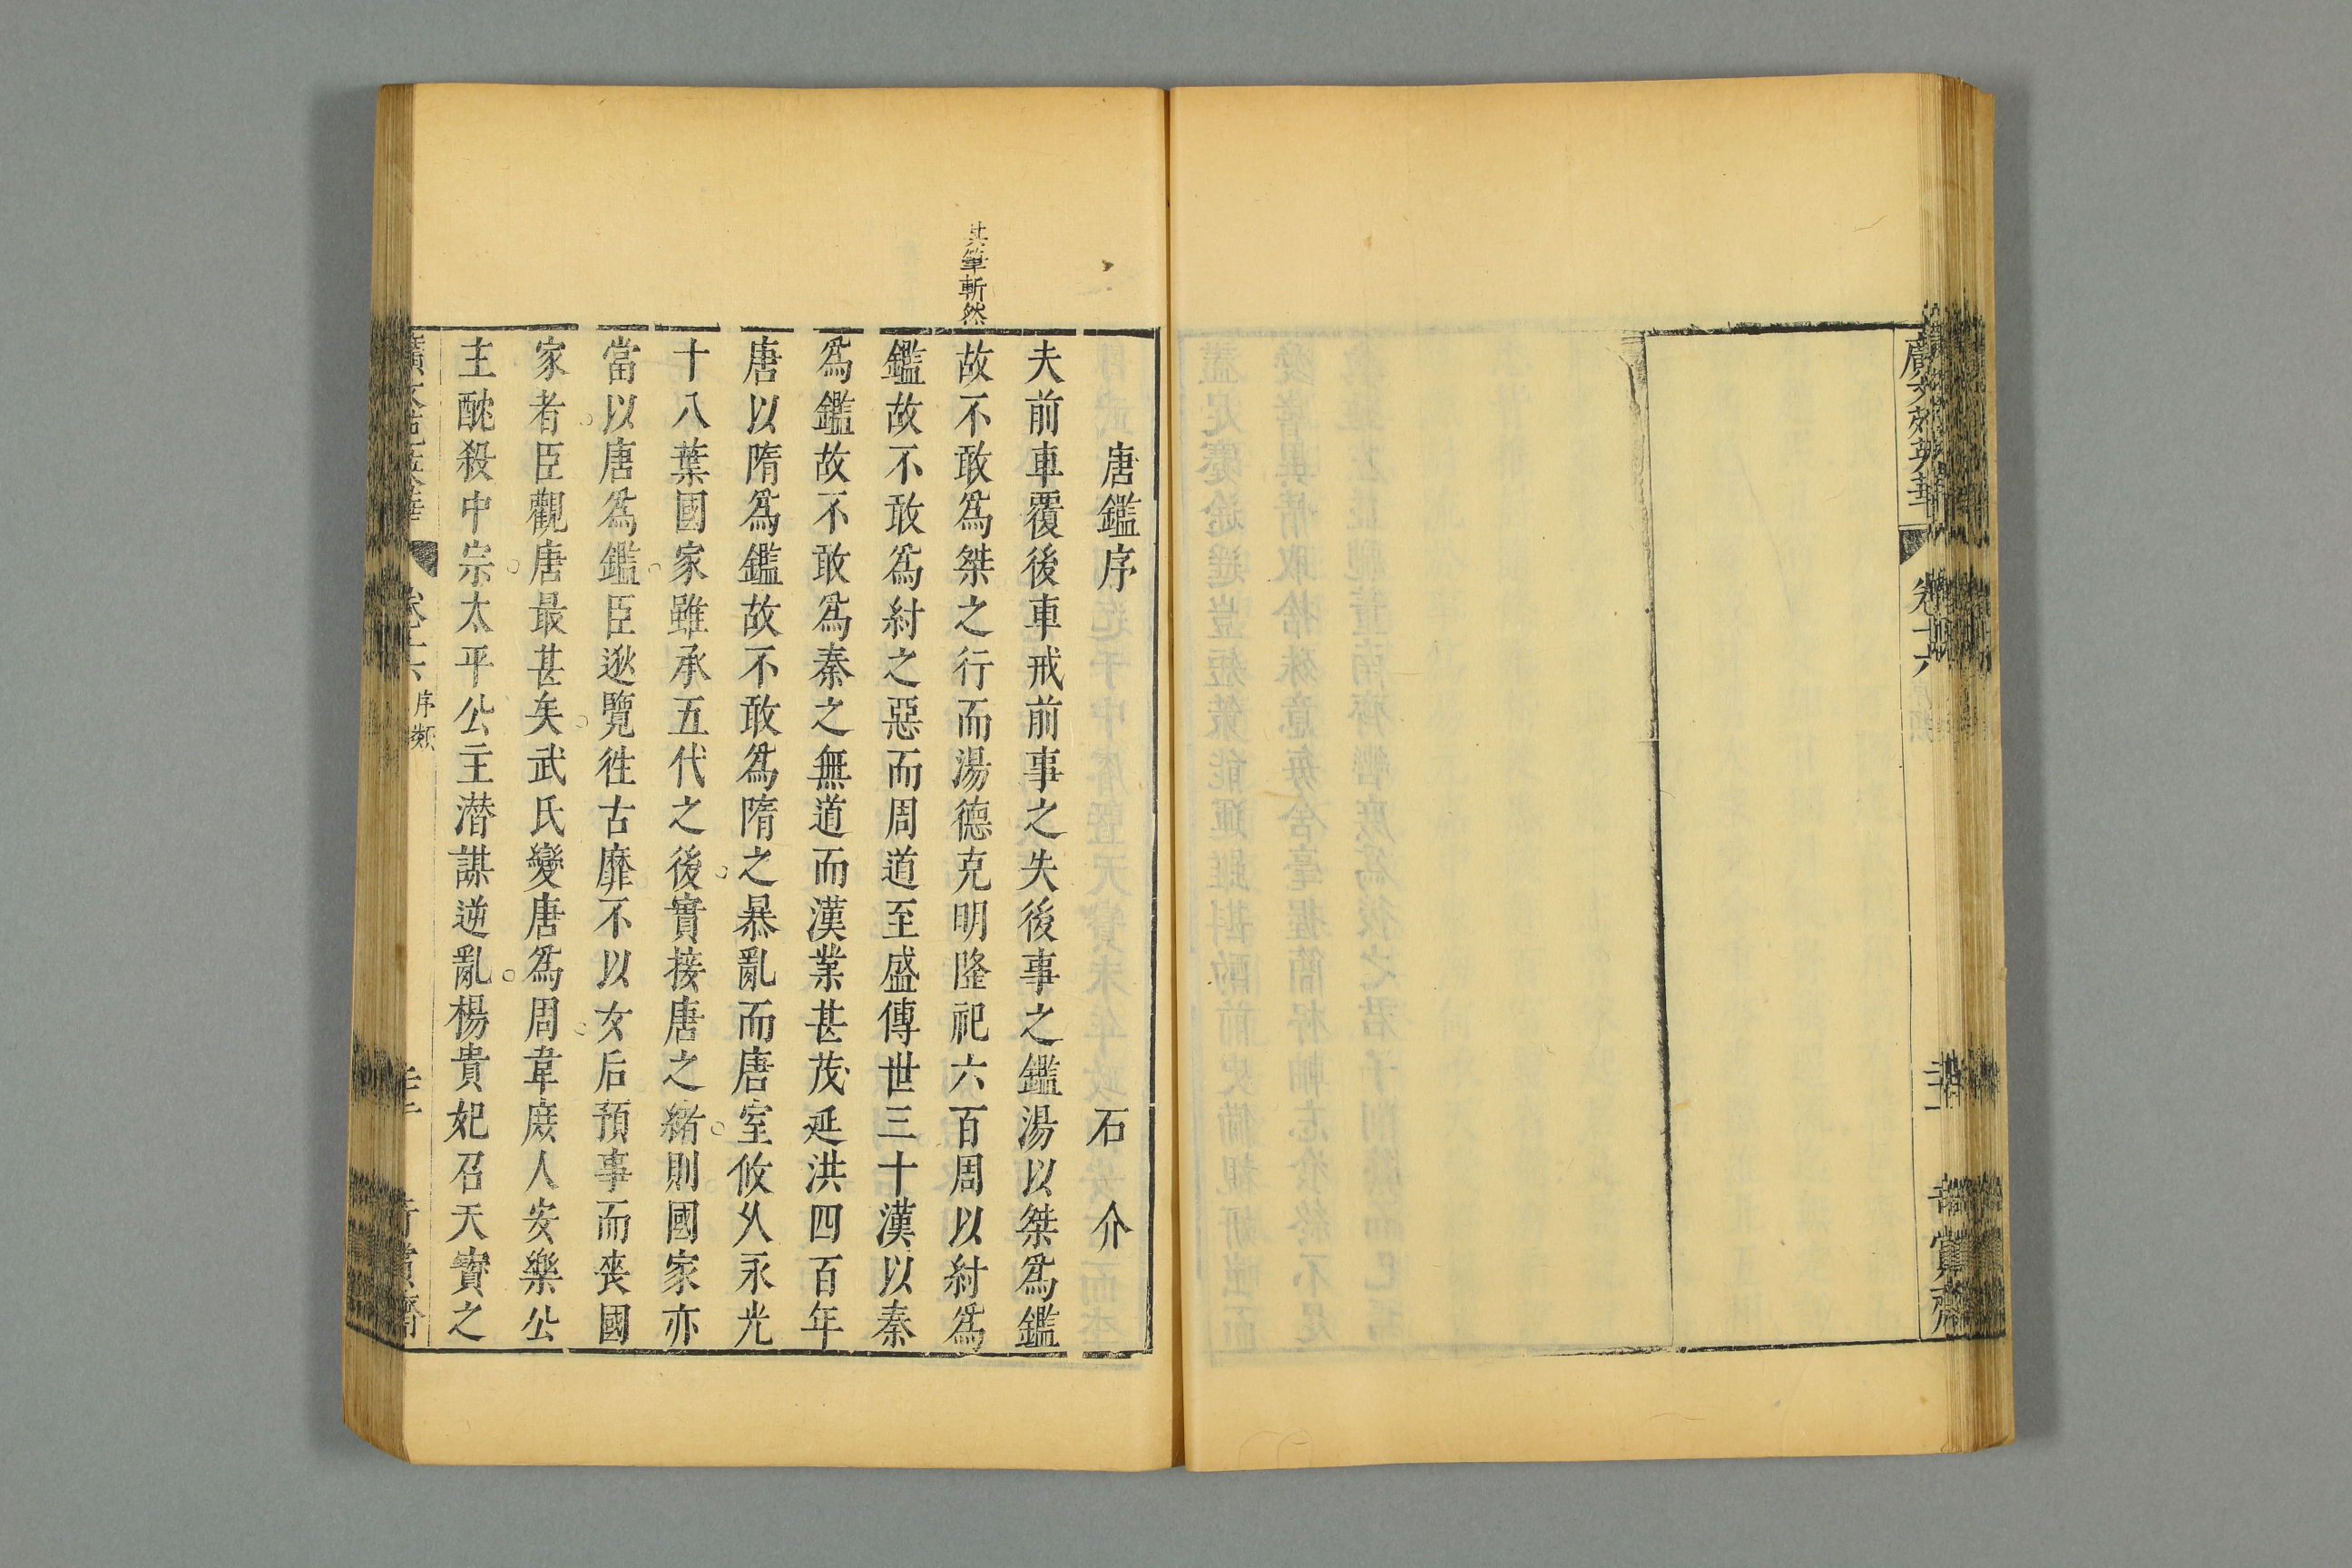 廣文苑英華
卷十六
奇賞齋
其筆斬然
唐鑑序 石介
夫前車覆後車戒前事之失後事之鑑湯以桀爲鑑
故不敢爲桀之行而湯德克明隆祀六百周以紂爲
鑑故不敢爲紂之惡而周道至盛傳世三十漢以秦
爲鑑故不敢爲秦之無道而漢業甚茂延洪四百年
唐以隋爲鑑故不敢爲隋之暴亂而唐室攸乆永光
十八葉國家雖承五代之後實接唐之緒則國家亦
當以唐爲鑑臣逖覽徃古靡不以女后預事而喪國
家者臣觀唐最甚矣武氏變唐爲周韋庻人安樂公
主酖殺中宗太平公主潜謀逆亂楊貴妃召天寶之
序類